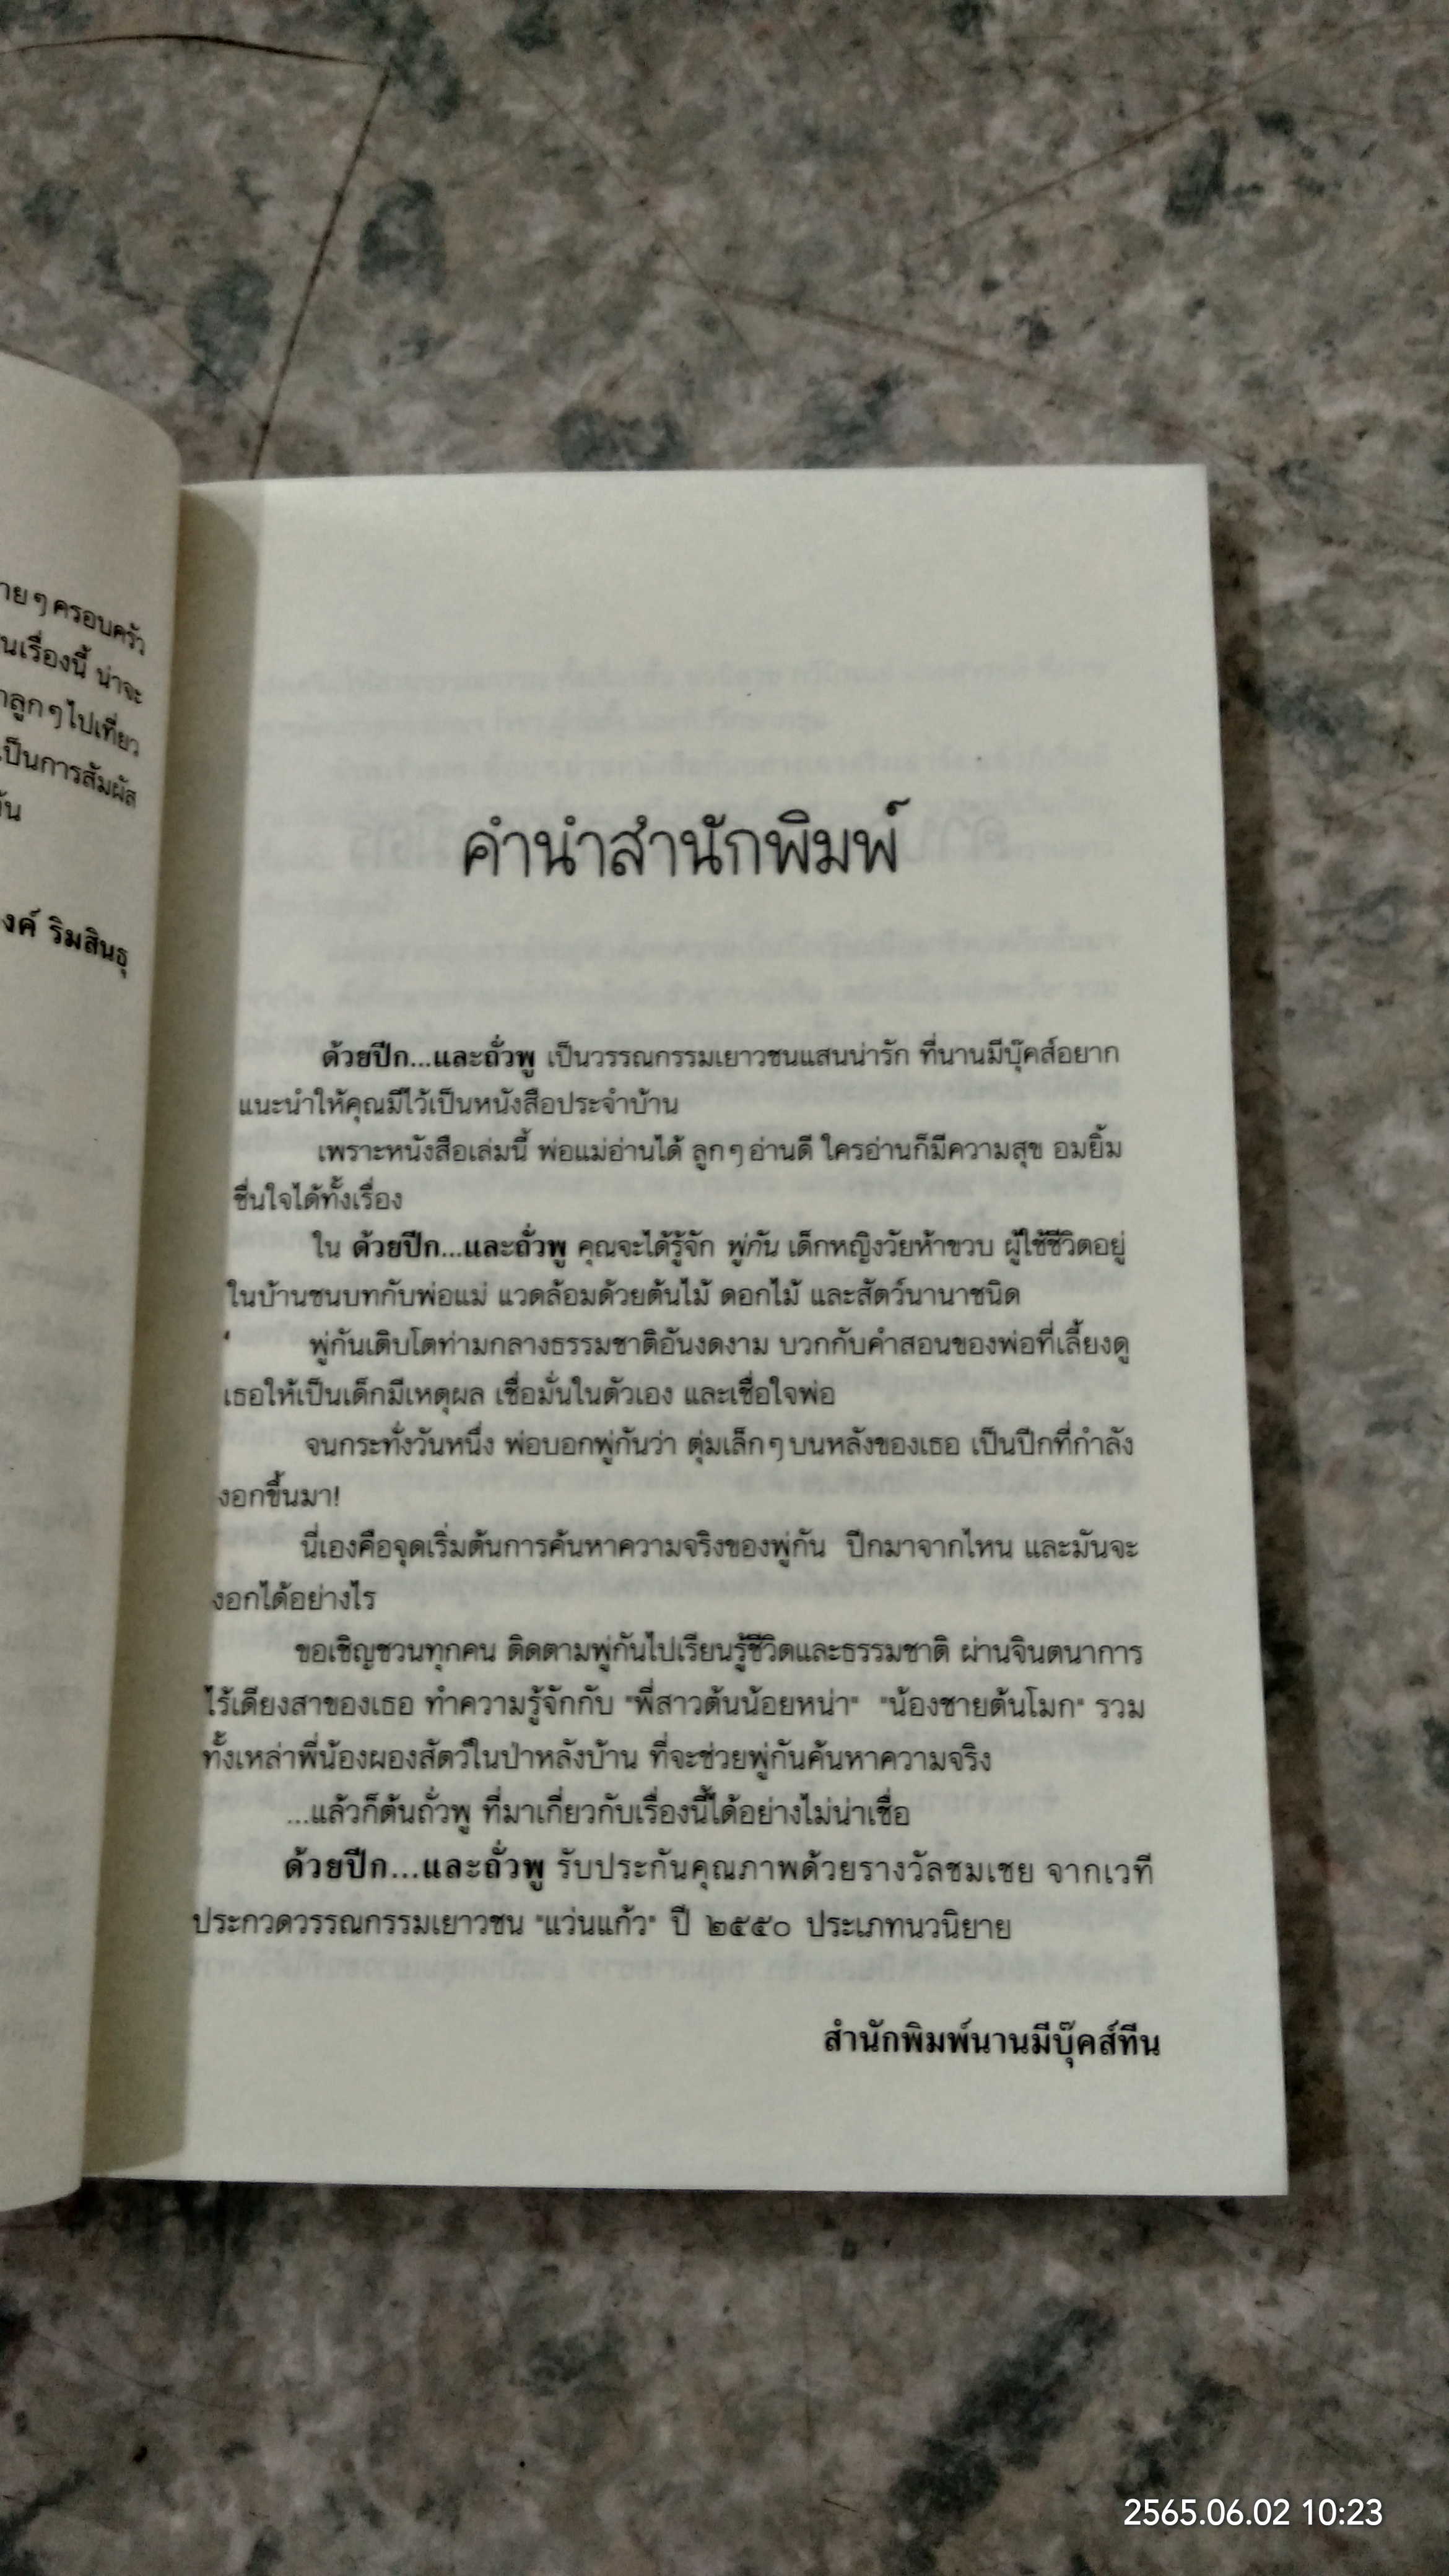 ายๆครอบครัว
นเรื่องนี้ น่าจะ
าลูกๆไปเที่ยว
เป็นการสัมผัส
งค์ ริมสินธุ
คำนำสำนักพิมพ์
ด้วยปีก...และถั่วพู เป็นวรรณกรรมเยาวชนแสนน่ารัก ที่นานมีบุ๊คส์อยาก
แนะนำให้คุณมีไว้เป็นหนังสือประจำบ้าน
เพราะหนังสือเล่มนี้ พ่อแม่อ่านได้ ลูกๆอ่านดี ใครอ่านก็มีความสุข อมยิ้ม
ชื่นใจได้ทั้งเรื่อง
ใน ด้วยปีก...และถั่วพู คุณจะได้รู้จัก พู่กัน เด็กหญิงวัยห้าขวบ ผู้ใช้ชีวิตอยู่
ในบ้านชนบทกับพ่อแม่ แวดล้อมด้วยต้นไม้ ดอกไม้ และสัตว์นานาชนิด
พู่กันเติบโตท่ามกลางธรรมชาติอันงดงาม บวกกับคำสอนของพ่อที่เลี้ยงดู
เธอให้เป็นเด็กมีเหตุผล เชื่อมั่นในตัวเอง และเชื่อใจพ่อ
จนกระทั่งวันหนึ่ง พ่อบอกพู่กันว่า ตุ่มเล็กๆบนหลังของเธอ เป็นปีกที่กำลัง
งอกขึ้นมา!
นี่เองคือจุดเริ่มต้นการค้นหาความจริงของพู่กัน ปีกมาจากไหน และมันจะ
งอกได้อย่างไร
ขอเชิญชวนทุกคน ติดตามพู่กันไปเรียนรู้ชีวิตและธรรมชาติ ผ่านจินตนาการ
ไร้เดียงสาของเธอ ทำความรู้จักกับ "พี่สาวต้นน้อยหน่า" "น้องชายต้นโมก" รวม
ทั้งเหล่าพี่น้องผองสัตว์ในป่าหลังบ้าน ที่จะช่วยพู่กันค้นหาความจริง
...แล้วก็ต้นถั่วพู ที่มาเกี่ยวกับเรื่องนี้ได้อย่างไม่น่าเชื่อ
ด้วยปีก...และถั่วพู รับประกันคุณภาพด้วยรางวัลชมเชย จากเวที
ประกวดวรรณกรรมเยาวชน "แว่นแก้ว" ปี ๒๕๕๐ ประเภทนวนิยาย
สำนักพิมพ์นานมีบุ๊คส์ทีน
2565.06.02 10:23